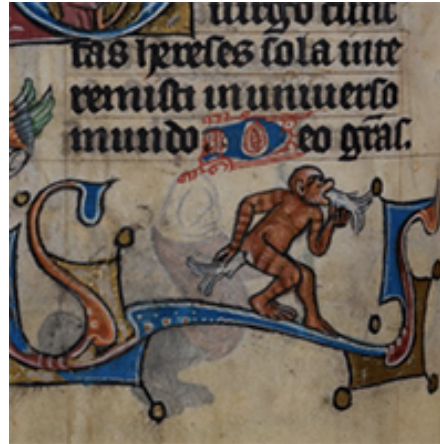 uirgo cunc
tas hereses sola inte
remisti in uniuerso
mundo Deo gr̄as.